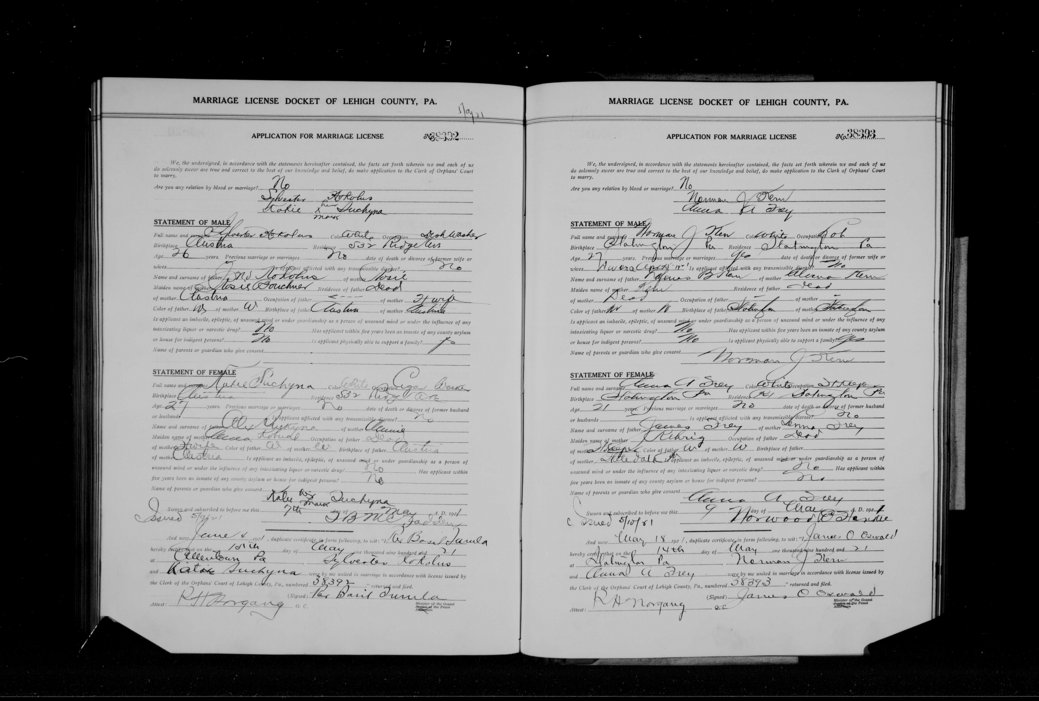 MARRIAGE LICENSE DOCKET OF LEHIGH COUNTY, PA.
APPLICATION FOR MARRIAGE LICENSE No 38392
We, the undersigned, in accordance with the statements hereinafter contained, the facts set forth wherein we and each of us
do solemnly swear are true and correct to the best of our knowledge and belief, do make application to the Clerk of Orphans' Court
to marry.
Are you any relation by blood or marriage? No
Sylvester Kokolus
Katie x Suchyna
her mark
STATEMENT OF MALE
Full name and surname Sylvester Kokolus Color White Occupation
Birthplace Austria Residence 532 Ridge Ave
Age 26 years. Previous marriage or marriages No date of death or divorce of former wife or
wives Is applicant afflicted with any transmissible disease? No
Name and surname of father Kokolus of mother
Maiden name of mother Residence of father Dead
of mother Austria Occupation of father of mother H wife
Color of father W of mother W Birthplace of father Austria of mother Austria
Is applicant an imbecile, epileptic, of unsound mind or under guardianship or under the influence of any
intoxicating liquor or narcotic drug? No Has applicant within five years been an inmate of any county asylum
or home for indigent persons? No Is applicant physically able to support a family?
Name of parents or guardian who give consent
STATEMENT OF FEMALE
Full name and surname Katie Suchyna Color White Occupation Cigar
Birthplace Austria Residence 532 Ridge Ave
Age 27 years. Previous marriage or marriages No date of death or divorce of former husband
or husbands Is applicant afflicted with any transmissible disease? No
Name and surname of father Suchyna of mother Annie
Maiden name of mother Occupation of father Dead
of mother H wife Color of father W of mother W Birthplace of father Austria
of mother Austria Is applicant an imbecile, epileptic, of unsound mind or under guardianship as a person of
unsound mind or under the influence of any intoxicating liquor or narcotic drug? No Has applicant within
five years been an inmate of any county asylum or home for indigent persons? No
Name of parents or guardian who give consent
Katie her x mark Suchyna
Sworn and subscribed to before me this 7th day of May A. D. 1921
Issued 5/7/21
And now, June 4 1921, duplicate certificate in form following, to wit: "I, Rev Basil Tumila
hereby certify that on the day of May one thousand nine hundred and 21
at Allentown Pa Sylvester Kokolus
and Katie Suchyna were by me united in marriage in accordance with license issued by
the Clerk of the Orphans' Court of Lehigh County, Pa., numbered 38392 returned and filed.
(Signed) Rev Basil Tumila
Attest: R H Norgang O.C.
Minister of the Gospel
MARRIAGE LICENSE DOCKET OF LEHIGH COUNTY, PA.
APPLICATION FOR MARRIAGE LICENSE No 38393
We, the undersigned, in accordance with the statements hereinafter contained, the facts set forth wherein we and each of us
do solemnly swear are true and correct to the best of our knowledge and belief, do make application to the Clerk of Orphans' Court
to marry.
Are you any relation by blood or marriage? No
Norman J Kern
Anna A Frey
STATEMENT OF MALE
Full name and surname Norman J Kern Color White Occupation
Birthplace Slatington Pa Residence Slatington Pa
Age 27 years. Previous marriage or marriages Yes date of death or divorce of former wife or
wives Is applicant afflicted with any transmissible disease? No
Name and surname of father Kern of mother Kern
Maiden name of mother Residence of father Dead
of mother Dead Occupation of father of mother
Color of father W of mother W Birthplace of father Slatington of mother Slatington
Is applicant an imbecile, epileptic, of unsound mind or under guardianship or under the influence of any
intoxicating liquor or narcotic drug? No Has applicant within five years been an inmate of any county asylum
or home for indigent persons? No Is applicant physically able to support a family? Yes
Name of parents or guardian who give consent
Norman J Kern
STATEMENT OF FEMALE
Full name and surname Anna A Frey Color White Occupation
Birthplace Slatington Pa Residence Slatington Pa
Age 21 years. Previous marriage or marriages No date of death or divorce of former husband
or husbands Is applicant afflicted with any transmissible disease? No
Name and surname of father James Frey of mother Frey
Maiden name of mother Occupation of father Dead
of mother Color of father W of mother W Birthplace of father
of mother Is applicant an imbecile, epileptic, of unsound mind or under guardianship as a person of
unsound mind or under the influence of any intoxicating liquor or narcotic drug? No Has applicant within
five years been an inmate of any county asylum or home for indigent persons? No
Name of parents or guardian who give consent
Anna A Frey
Sworn and subscribed to before me this 9 day of May A. D. 1921
Issued 5/10/21
And now, May 18 1921, duplicate certificate in form following, to wit: "I, James O Oswald
hereby certify that on the 14th day of May one thousand nine hundred and 21
at Slatington Pa Norman J Kern
and Anna A Frey were by me united in marriage in accordance with license issued by
the Clerk of the Orphans' Court of Lehigh County, Pa., numbered 38393 returned and filed.
(Signed) James O Oswald
Attest: R H Norgang O.C.
Minister of the Gospel